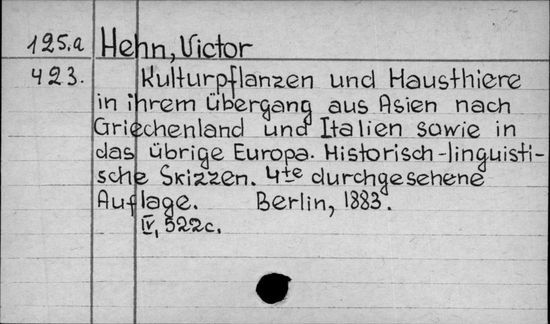 125.a Hehn, Victor
423. Kulturpflanzen und Hausthiere
in ihrem Übergang aus Asien nach
Griechenland und Italien sowie in
das übrige Europa. Historisch-linguisti-
sche Skizzen. 4te durchgesehene
Auflage. Berlin, 1883.
IV, 522c.